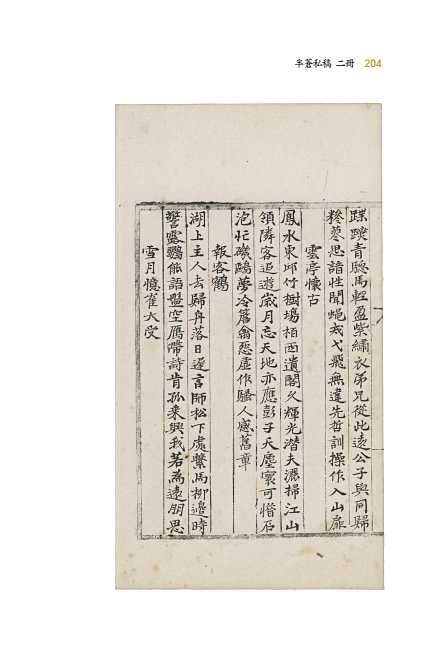 半蒼私稿 二冊 204
蹀躞青驄馬輕盈紫繡衣弟兄從此遠公子與同歸
穆蔘性諳聞蝿戎弋飛無違先哲訓操作入山扉
雲亭懷古
鳳水東邱竹樹場栢西遺閣久輝光潛夫灑掃江山
領隣客追遊歲月忘天地亦應彭子夭塵寰可惜石
沱忙磯鷗夢冷簷禽惡虛作騷人感舊章
報客鶴
湖上主人去歸舟落日遲言師松下處繫馬柳邊時
警露鸚能語盤空鴈帶詩肯孤乘興我若為遠朋思
雪月憶崔大受